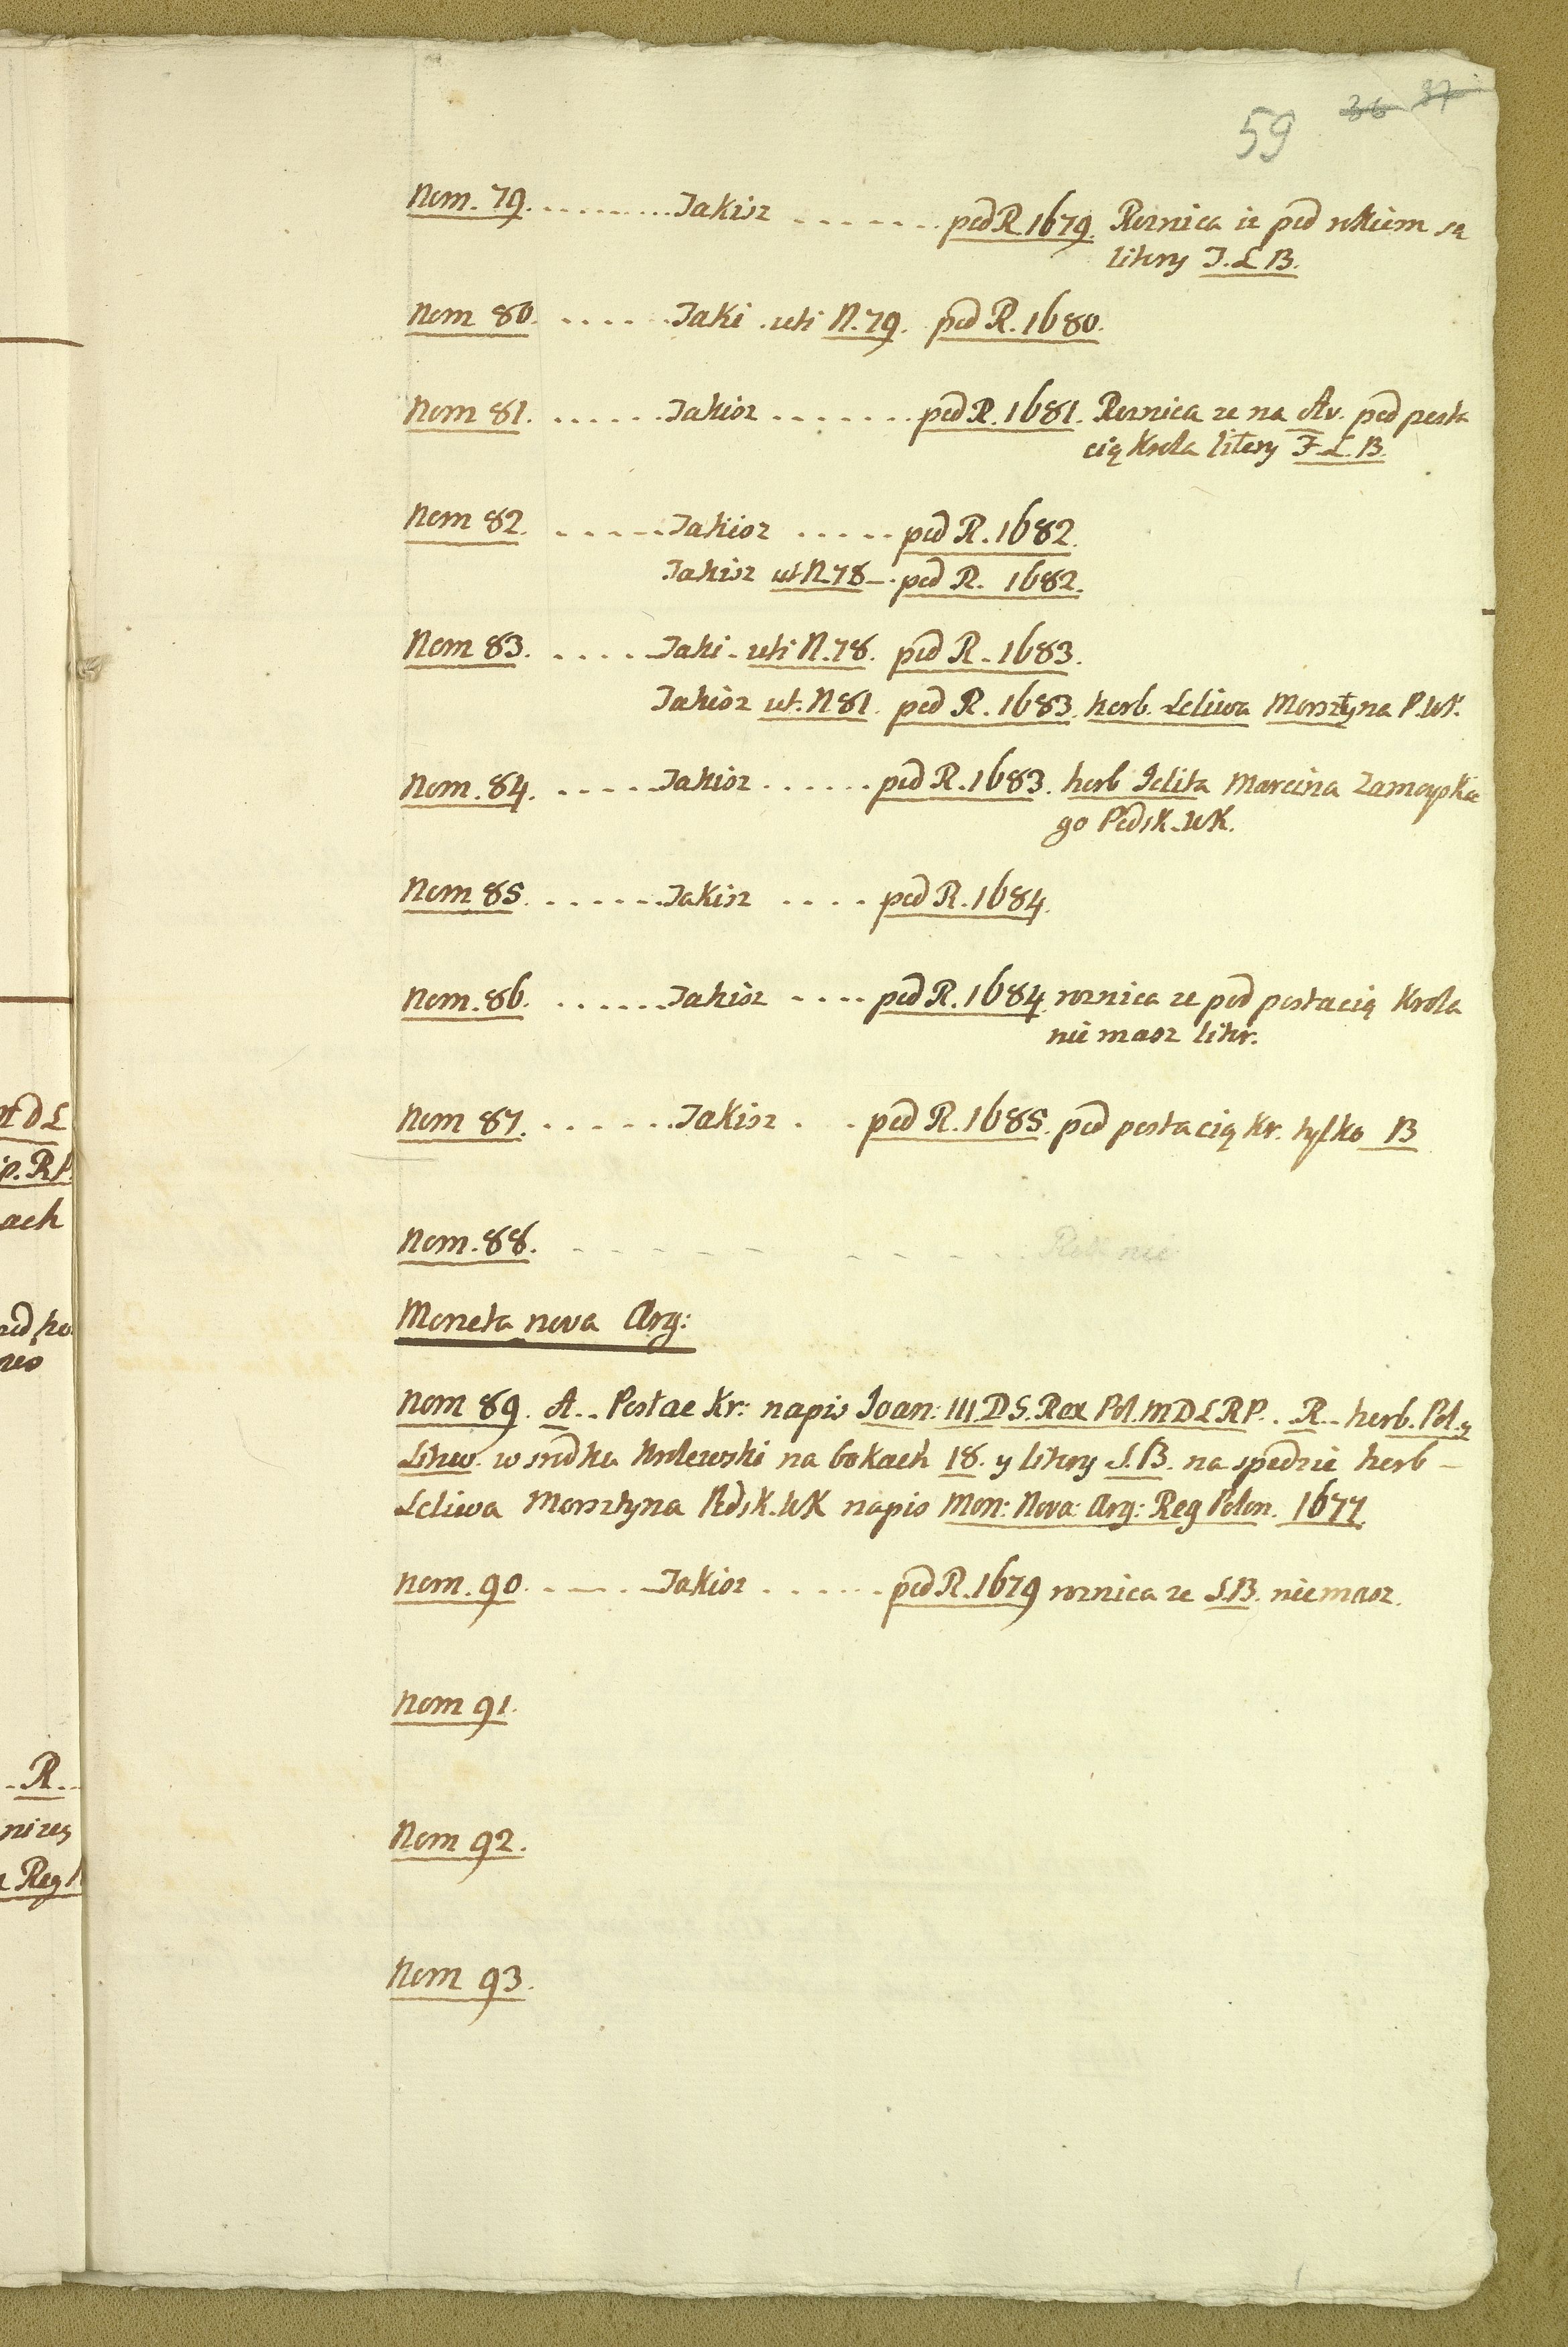 59 36 37
Nom. 79. ......... Jakisz ....... pod R. 1679. Roznica iz pod rokiem są
litery J. L B.
Nom 80. ..... Jaki uti N. 79. pod R. 1680.
Nom 81. ...... Jakisz ........ pod R. 1681. Roznica ze na Av. pod posta
cią Krola litery J. L. B.
Nom 82. ..... Jakisz ..... pod R. 1682.
Jakisz ut N. 78 -. pod R. 1682.
Nom 83. ..... Jaki - uti N. 78. pod R. 1683.
Jakisz ut. N 81. pod R. 1683. herb. Leliwa Morsztyna P. W K.
Nom. 84. ..... Jakisz ...... pod R. 1683. herb Jelita Marcina Zamoyskie
go Podsk. W K.
Nom 85. ...... Jakisz .... pod R. 1684.
Nom. 86. ...... Jakisz .... pod R. 1684. roznica ze pod postacią Krola
nie masz liter.
Nom 87. ...... Jakisz . .. pod R. 1685. pod postacią Kr. tylko B
Nom. 88. - - - - - - - - - - Rok nie
Moneta nova Arg:
Nom 89. A.. Postac Kr: napis Joan: III D S. Rex Pol. M D L R P. . R.. herb. Pol. y
Litew. w srodku Krolewski na bokach 18. y litery S. B. na spodzie herb -
Leliwa Morsztyna Podsk. W K napis Mon: Nova: Arg: Reg Polon. 1677.
Nom. 90. ..... Jakisz ...... pod R. 1679 roznica ze S. B. nie masz.
Nom 91.
Nom 92.
Nom 93.